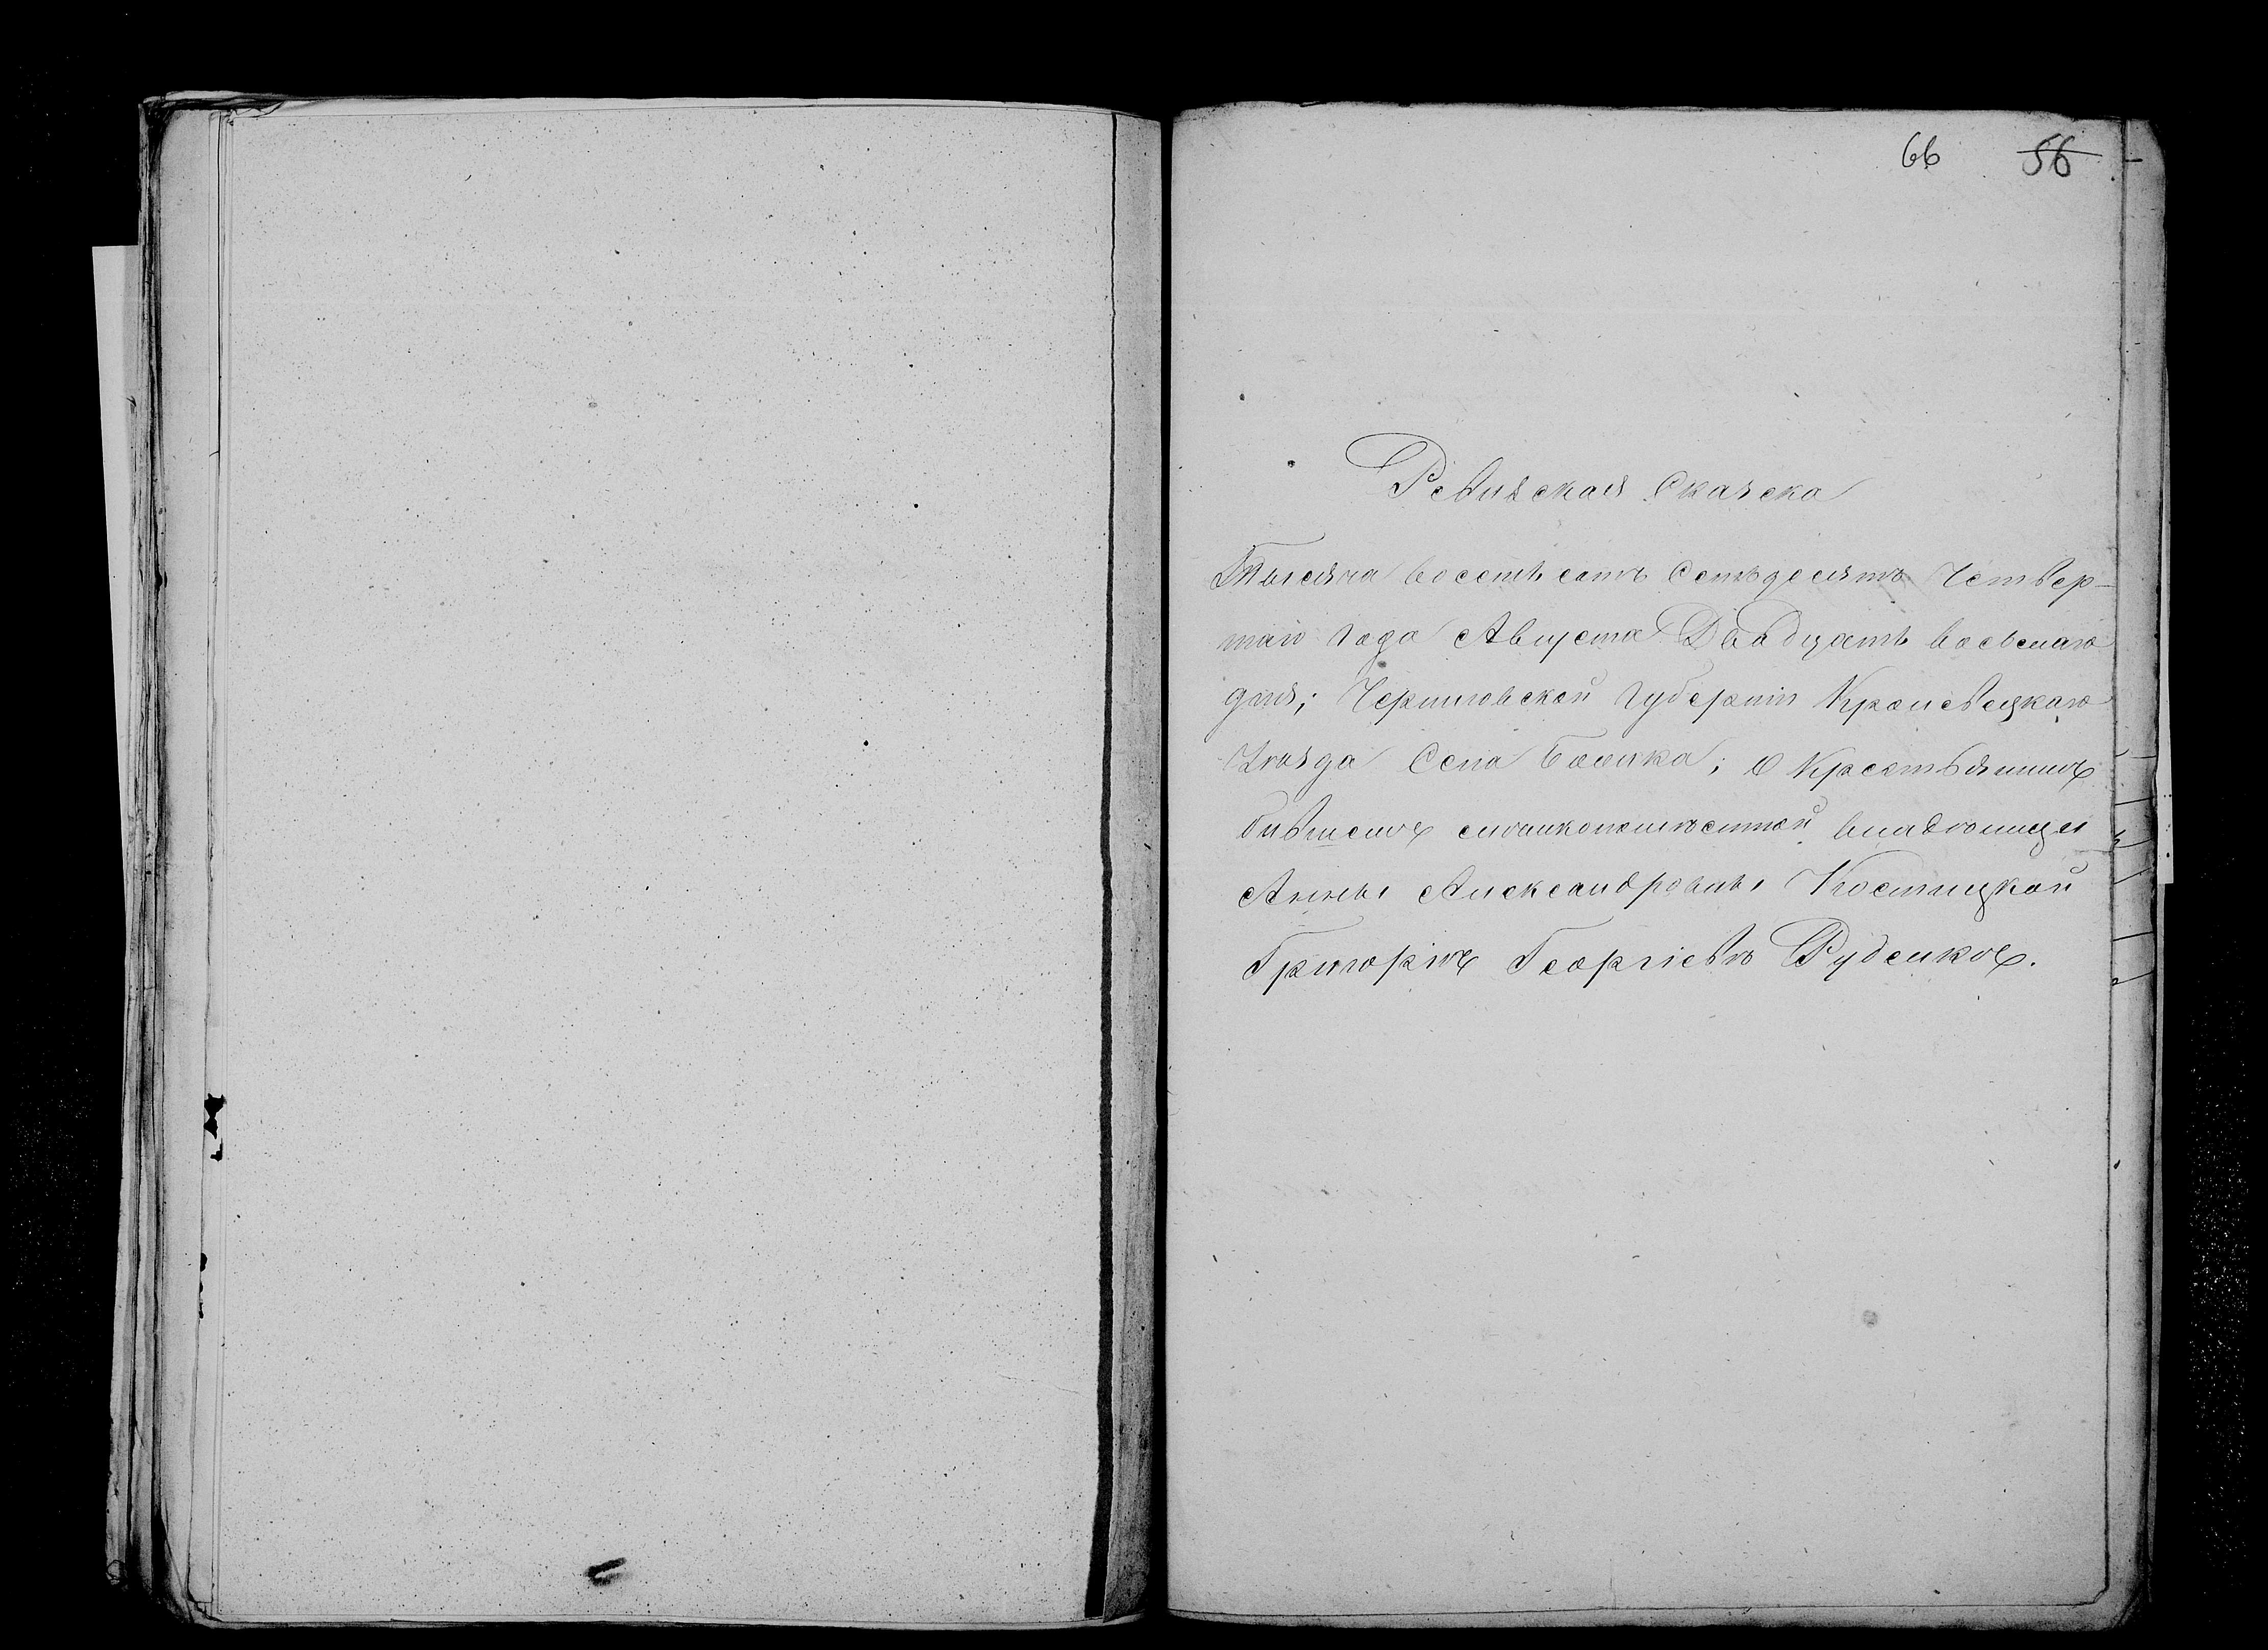 66 56
Ревизская Сказска
Тысяча восемь сотъ Семьдесятъ Четвер-
таго Года Августа Двадцать восьмаго
дня; Черниговской Губерніи Кролевецкаго
Уѣзда Села; О Крестьянинѣ
бившемъ мѣлкопомѣстной владѣлицы
Анны Александровны Костицкой
Григоріѣ Георгіевѣ Руденкѣ.